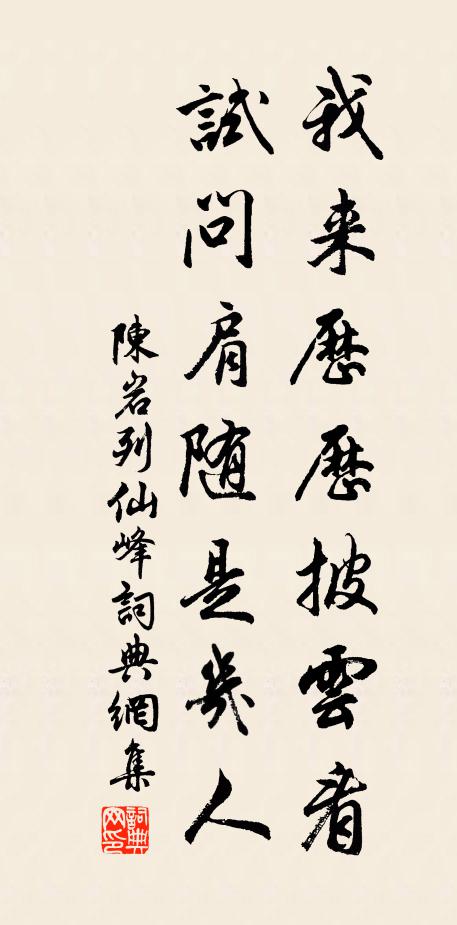 我来歷歷披雲看
試問肩随是幾人
陳岩列仙峰詞典網集
詞典
网印